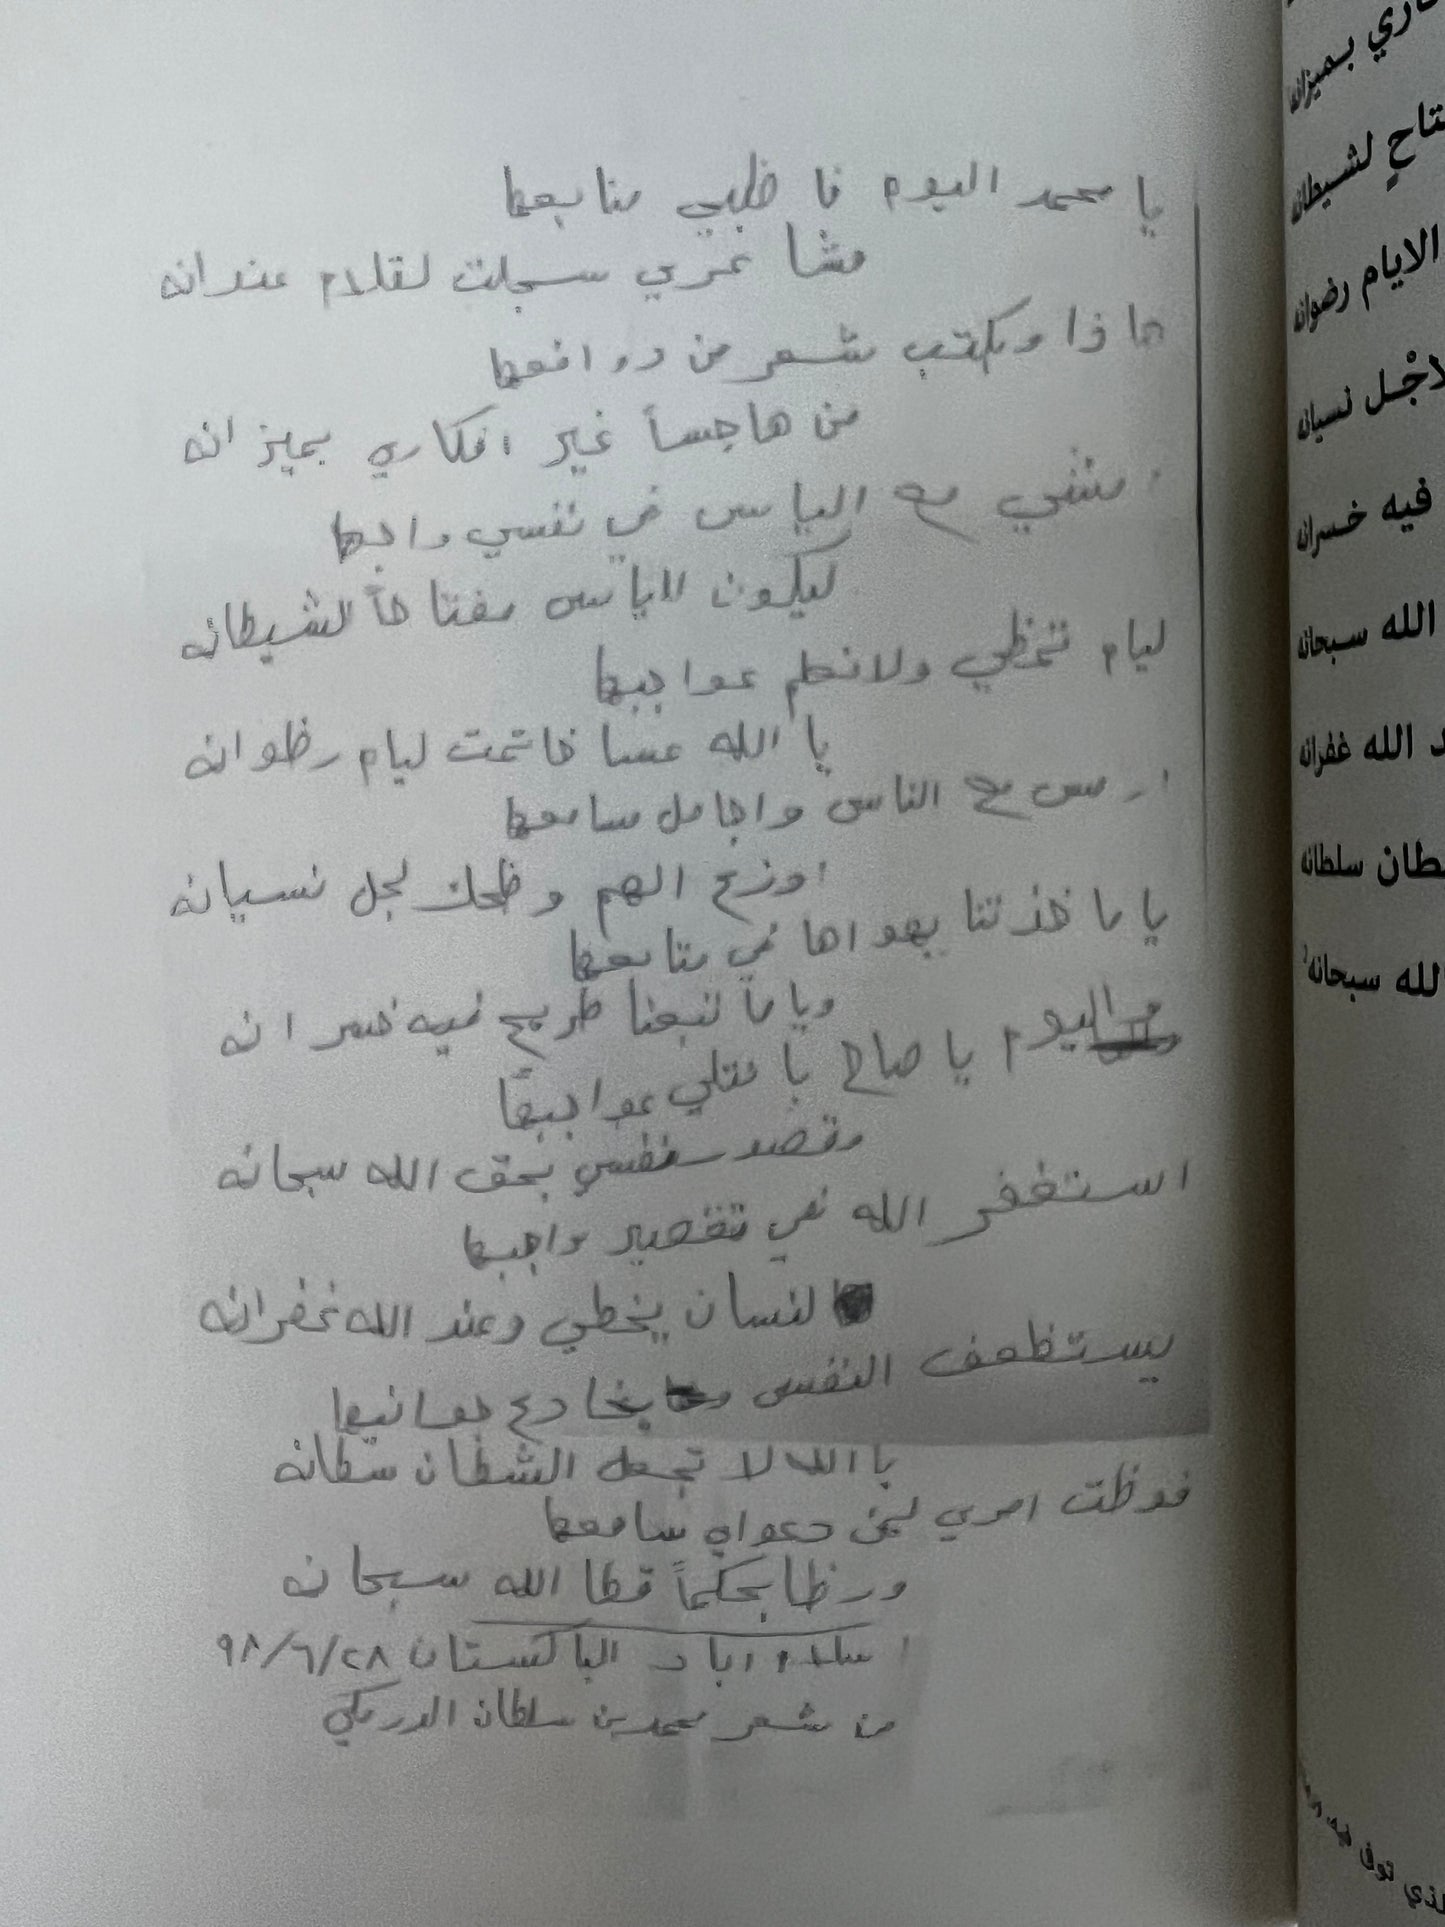 يا محمد اليوم فا ظلبي منابعها
مشا عري سجلت لقلام عندانه
ماذا ويكتب شعر من دوافعها
من هاجساً غير افكاري بميزانه
امشي مع الياس في نفسي واجها
ليكون لاياس مفتاحاً لشيطانه
ليام تمظي ولانعلم عواجبها
يا الله عسا خاتمت ليام رظوانه
ارمس مع الناس واجامل سامعها
اوزع الهم وظحك لجل نسيانه
يا ما خذتنا بهواها في متابعها
ويا ما تبعنا طريج فيه خسرانه
واليوم يا صاح با متلي عواجبها
وتصد نفسي بحق الله سبحانه
استغفر الله في تقصير واجبها
لنسان يخطي وعند الله غفرانه
يستظعف النفس ويخادع جوانبها
يا الله لا تجعل الشطان سطانه
فوظت امري لمن دعواي سامعها
ورظا بحكماً قظا الله سبحانه
اسلام اباد الباكستان ٩٨/٦/٢٨
من شعر محمد بن سلطان الدرمكي
اري بميزانه
تاحٍ لشيطانه
الايام رضوانه
لاجْل نسيانه
فيه خسرانه
الله سبحانه
د الله غفرانه
طان سلطانه
لله سبحانه